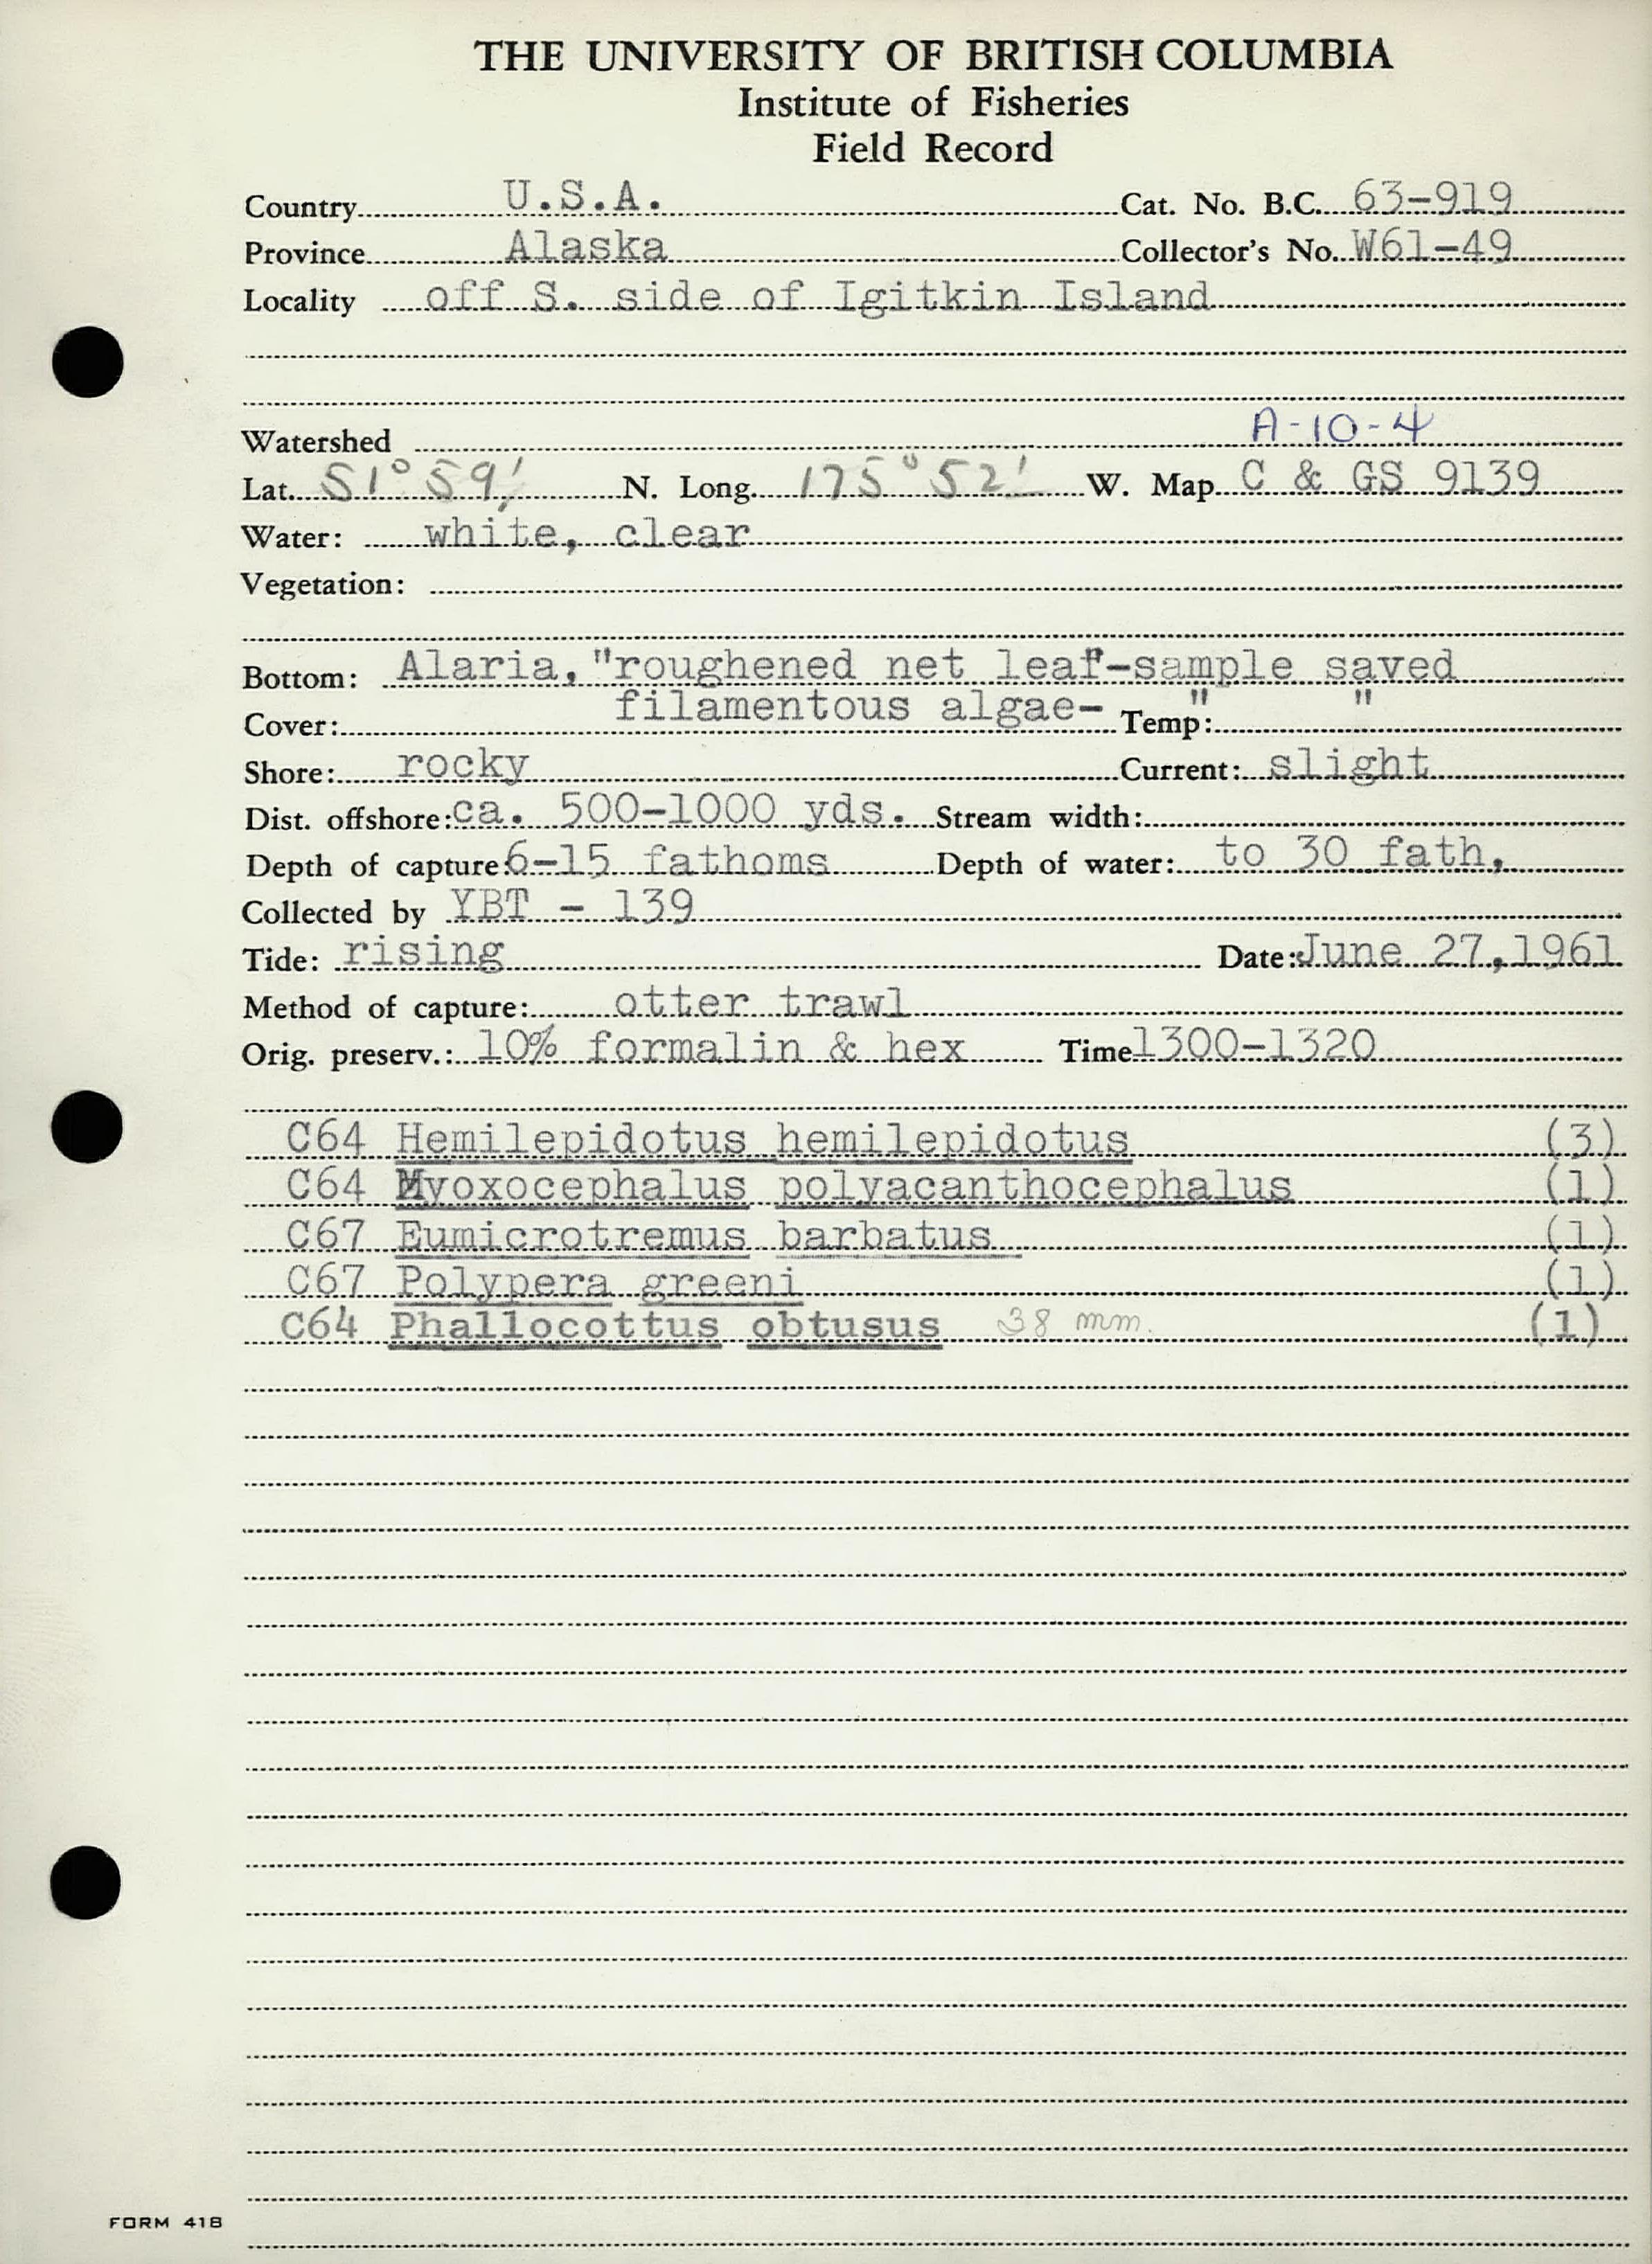 THE UNIVERSITY OF BRITISH COLUMBIA
Institute of Fisheries
Field Record
Country U.S.A. Cat. No. B.C. 63-919
Province Alaska Collector's No. W61-49
Locality off S. side of Igitkin Island
A-10-4
Watershed
Lat. 51° 59' N. Long. 175° 52' W. Map C & GS 9139
Water: white, clear
Vegetation:
Bottom: Alaria, "roughened net leaf"-sample saved
filamentous algae- " "
Cover: Temp:
Shore: rocky Current: slight
Dist. offshore: ca. 500-1000 yds. Stream width:
Depth of capture: 6-15 fathoms Depth of water: to 30 fath,
Collected by YBT - 139
Tide: rising Date: June 27, 1961
Method of capture: otter trawl
Orig. preserv.: 10% formalin & hex Time 1300-1320
C64 Hemilepidotus hemilepidotus (3)
C64 Myoxocephalus polyacanthocephalus (1)
C67 Eumicrotremus barbatus (1)
C67 Polypera greeni (1)
C64 Phallocottus obtusus 38 mm. (1)
FORM 418